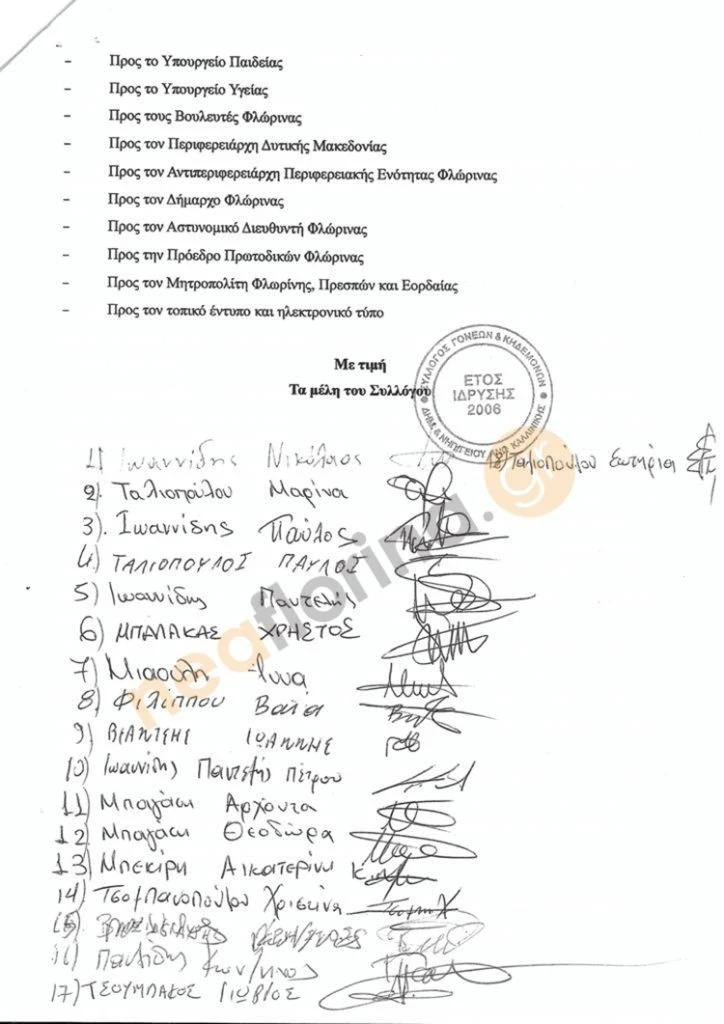 - Προς το Υπουργείο Παιδείας
- Προς το Υπουργείο Υγείας
- Προς τους Βουλευτές Φλώρινας
- Προς τον Περιφερειάρχη Δυτικής Μακεδονίας
- Προς τον Αντιπεριφερειάρχη Περιφερειακής Ενότητας Φλώρινας
- Προς τον Δήμαρχο Φλώρινας
- Προς τον Αστυνομικό Διευθυντή Φλώρινας
- Προς την Πρόεδρο Πρωτοδικών Φλώρινας
- Προς τον Μητροπολίτη Φλωρίνης, Πρεσπών και Εορδαίας
- Προς τον τοπικό έντυπο και ηλεκτρονικό τύπο
Με τιμή
Τα μέλη του Συλλόγου
ΣΥΛΛΟΓΟΣ ΓΟΝΕΩΝ & ΚΗΔΕΜΟΝΩΝ
ΕΤΟΣ
ΙΔΡΥΣΗΣ
2006
ΔΗΜ. & ΝΗΠ/ΓΕΙΟΥ ΚΑΛΛΙΝΙΚΗΣ
1) Ιωαννίδης Νικόλαος
18) Ταλιοπούλου Σωτηρία
2) Ταλιοπούλου Μαρίνα
3) Ιωαννίδης Παύλος
4) ΤΑΛΙΟΠΟΥΛΟΣ ΠΑΥΛΟΣ
5) Ιωαννίδης Παντελής
6) ΜΠΑΛΑΚΑΣ ΧΡΗΣΤΟΣ
7) Μιαούλη Άννα
8) Φιλίππου Βάϊα
9) ΙΩΑΝΝΗΣ
10) Ιωαννίδης Παντελής Πέτρου
11) Μπαγάσι Αρχόντα
12) Μπαγάσι Θεοδώρα
13) Μπεκίρη Αικατερίνη
14) Τσομπανοπούλου Χριστίνα
15)
16) Παυλίδης Κων/νος
17) ΤΣΟΥΜΠΑΚΟΣ ΓΙΩΡΓΟΣ
neaflorina.gr